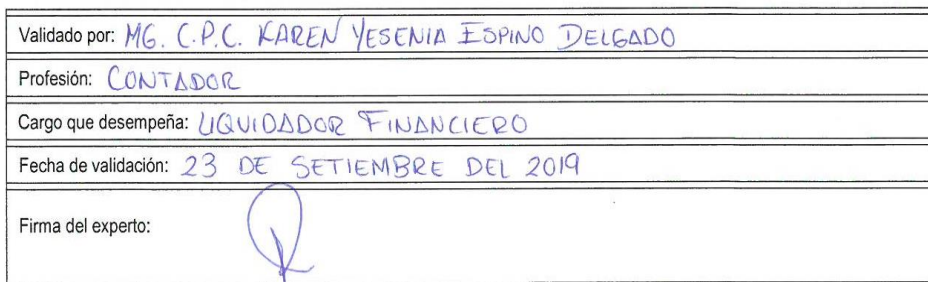 Validado por: MG. C.P.C. KAREN YESENIA ESPINO DELGADO
Profesión: CONTADOR
Cargo que desempeña: LIQUIDADOR FINANCIERO
Fecha de validación: 23 DE SETIEMBRE DEL 2019
Firma del experto: